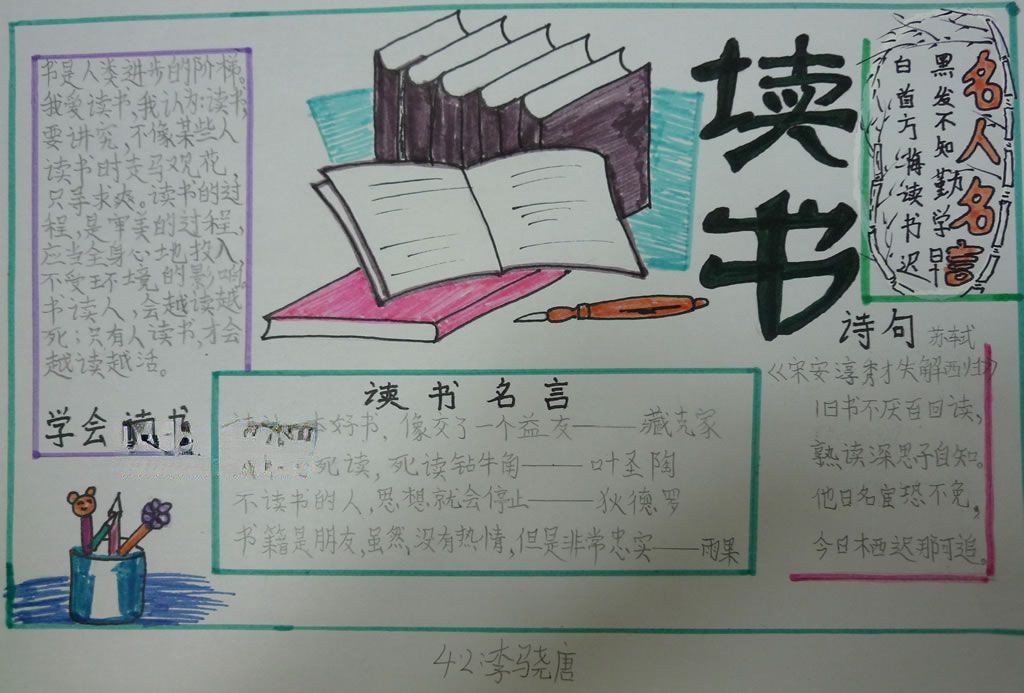 书是人类进步的阶梯。
我爱读书,我认为:读书,
要讲究,不像某些人
读书时走马观花,
只手求爽。读书的过
程,是审美的过程,
应当全身心地投入,
不受环境的影响。
书读人,会越读越
死;只有人读书,才会
越读越活。
学会读书
读书
名人名言
黑发不知勤学早
白首方悔读书迟
读书名言
本好书,像交了一个益友——臧克家
死读,死读钻牛角——叶圣陶
不读书的人,思想就会停止——狄德罗
书籍是朋友,虽然,没有热情,但是非常忠实——雨果
诗句 苏轼
《宋安淳秀才失解西归》
旧书不厌百回读,
熟读深思子自知。
他日名宦恐不免,
今日栖迟那可追。
4·2:李骁唐